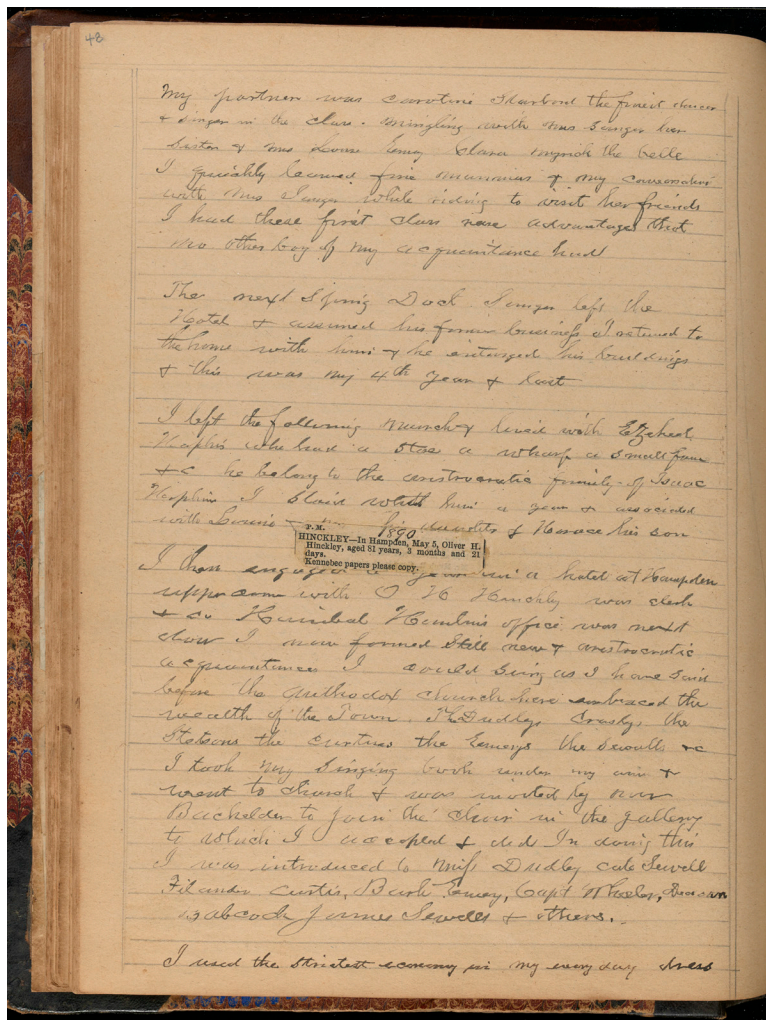 48
My partner was Caroline Starbord the finest dancer
& singer in the class. Mingling with Mrs Sanger her
sister & Mrs Louise Emery Clara the belle
I quickly learned fine manners & my conversation
with Mrs Sanger while riding to visit her friends
I had these first class rare advantages that
no other boy of my acquaintance had
The next Spring Dock Sanger left the
Hotel & assumed his former business I returned to
the home with him & he enlarged his buildings
& this was my 4th year & last
I left the following March & lived with
Hopkins who had a Store a wharf a small farm
& c he belong to the aristocratic family of Isaac
Hopkins I staid with him a year & associated
with & Horace his son
P. M.
1890
HINCKLEY—In Hampden, May 5, Oliver H.
Hinckley, aged 81 years, 3 months and 21
days.
Kennebec papers please copy.
I then engaged a year in a hotel at Hampden
upper corner with O H Hinckley was clerk
& c Hannibal Hamlins office was next
door I now formed Still new & aristocratic
acquaintances I could sing as I have said
before the Orthodox church here embraced the
wealth of the Town. The Dudleys Crosbys the
Stetsons the Curtises the Emerys the Sewalls &c
I took my Singing book under my arm &
went to church & was invited by
Bachelder to join the choir in the gallery
to which I accepted & did In doing this
I was introduced to Miss Dudley Sewell
Curtis, Emery, Capt Wheeler, Deacon
Babcock James Sewells & others.
I used the strictest economy in my every day dress